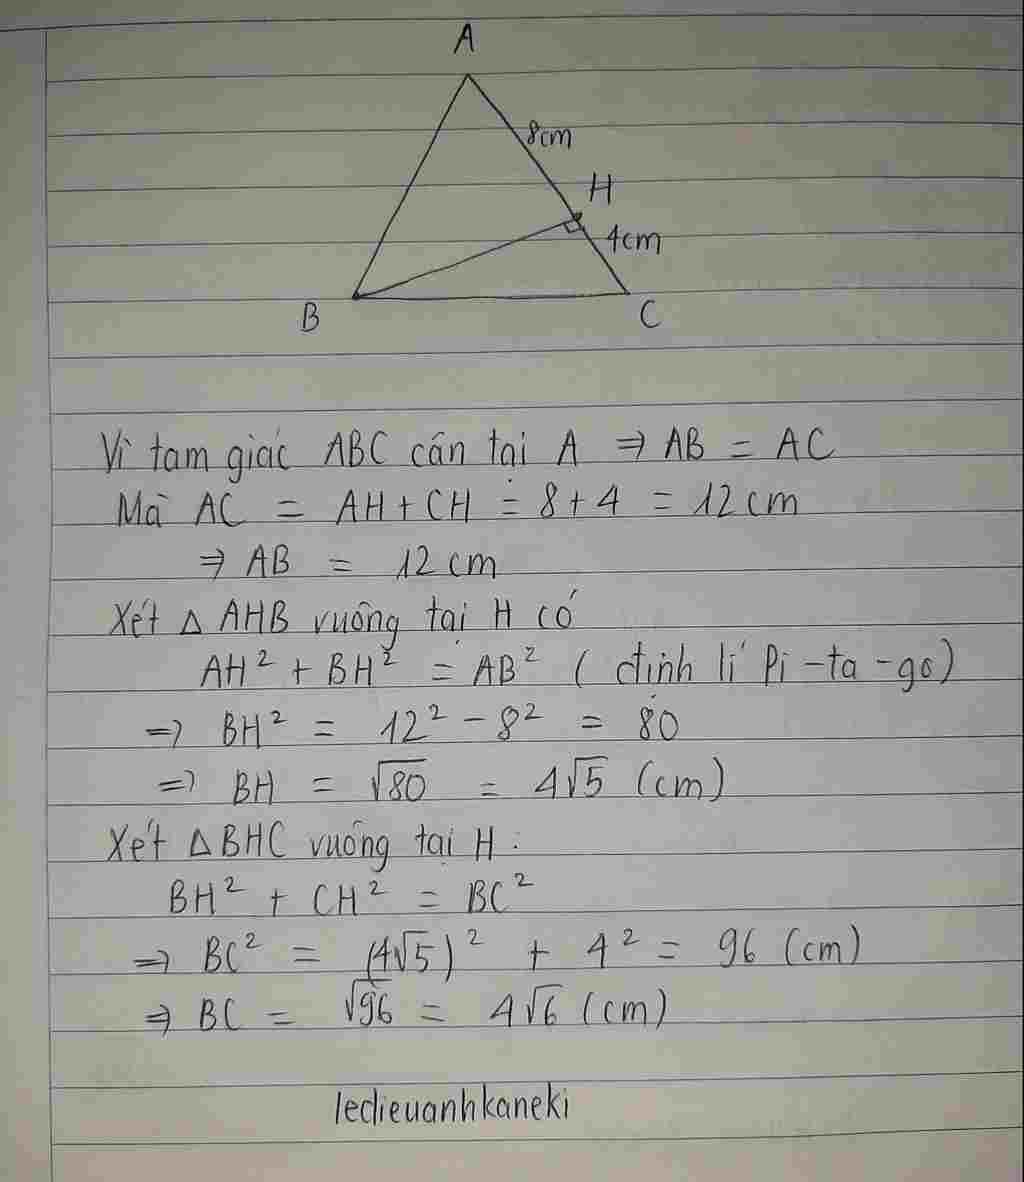 A
8cm
H
4cm
B
C
Vì tam giác ABC cân tại A ⇒ AB = AC
Mà AC = AH + CH = 8 + 4 = 12 cm
⇒ AB = 12 cm
Xét △ AHB vuông tại H có
AH² + BH² = AB² ( định lí Pi-ta-go)
⇒ BH² = 12² - 8² = 80
⇒ BH = √80 = 4√5 (cm)
Xét △BHC vuông tại H :
BH² + CH² = BC²
⇒ BC² = (4√5)² + 4² = 96 (cm)
⇒ BC = √96 = 4√6 (cm)
ledieuanhkaneki